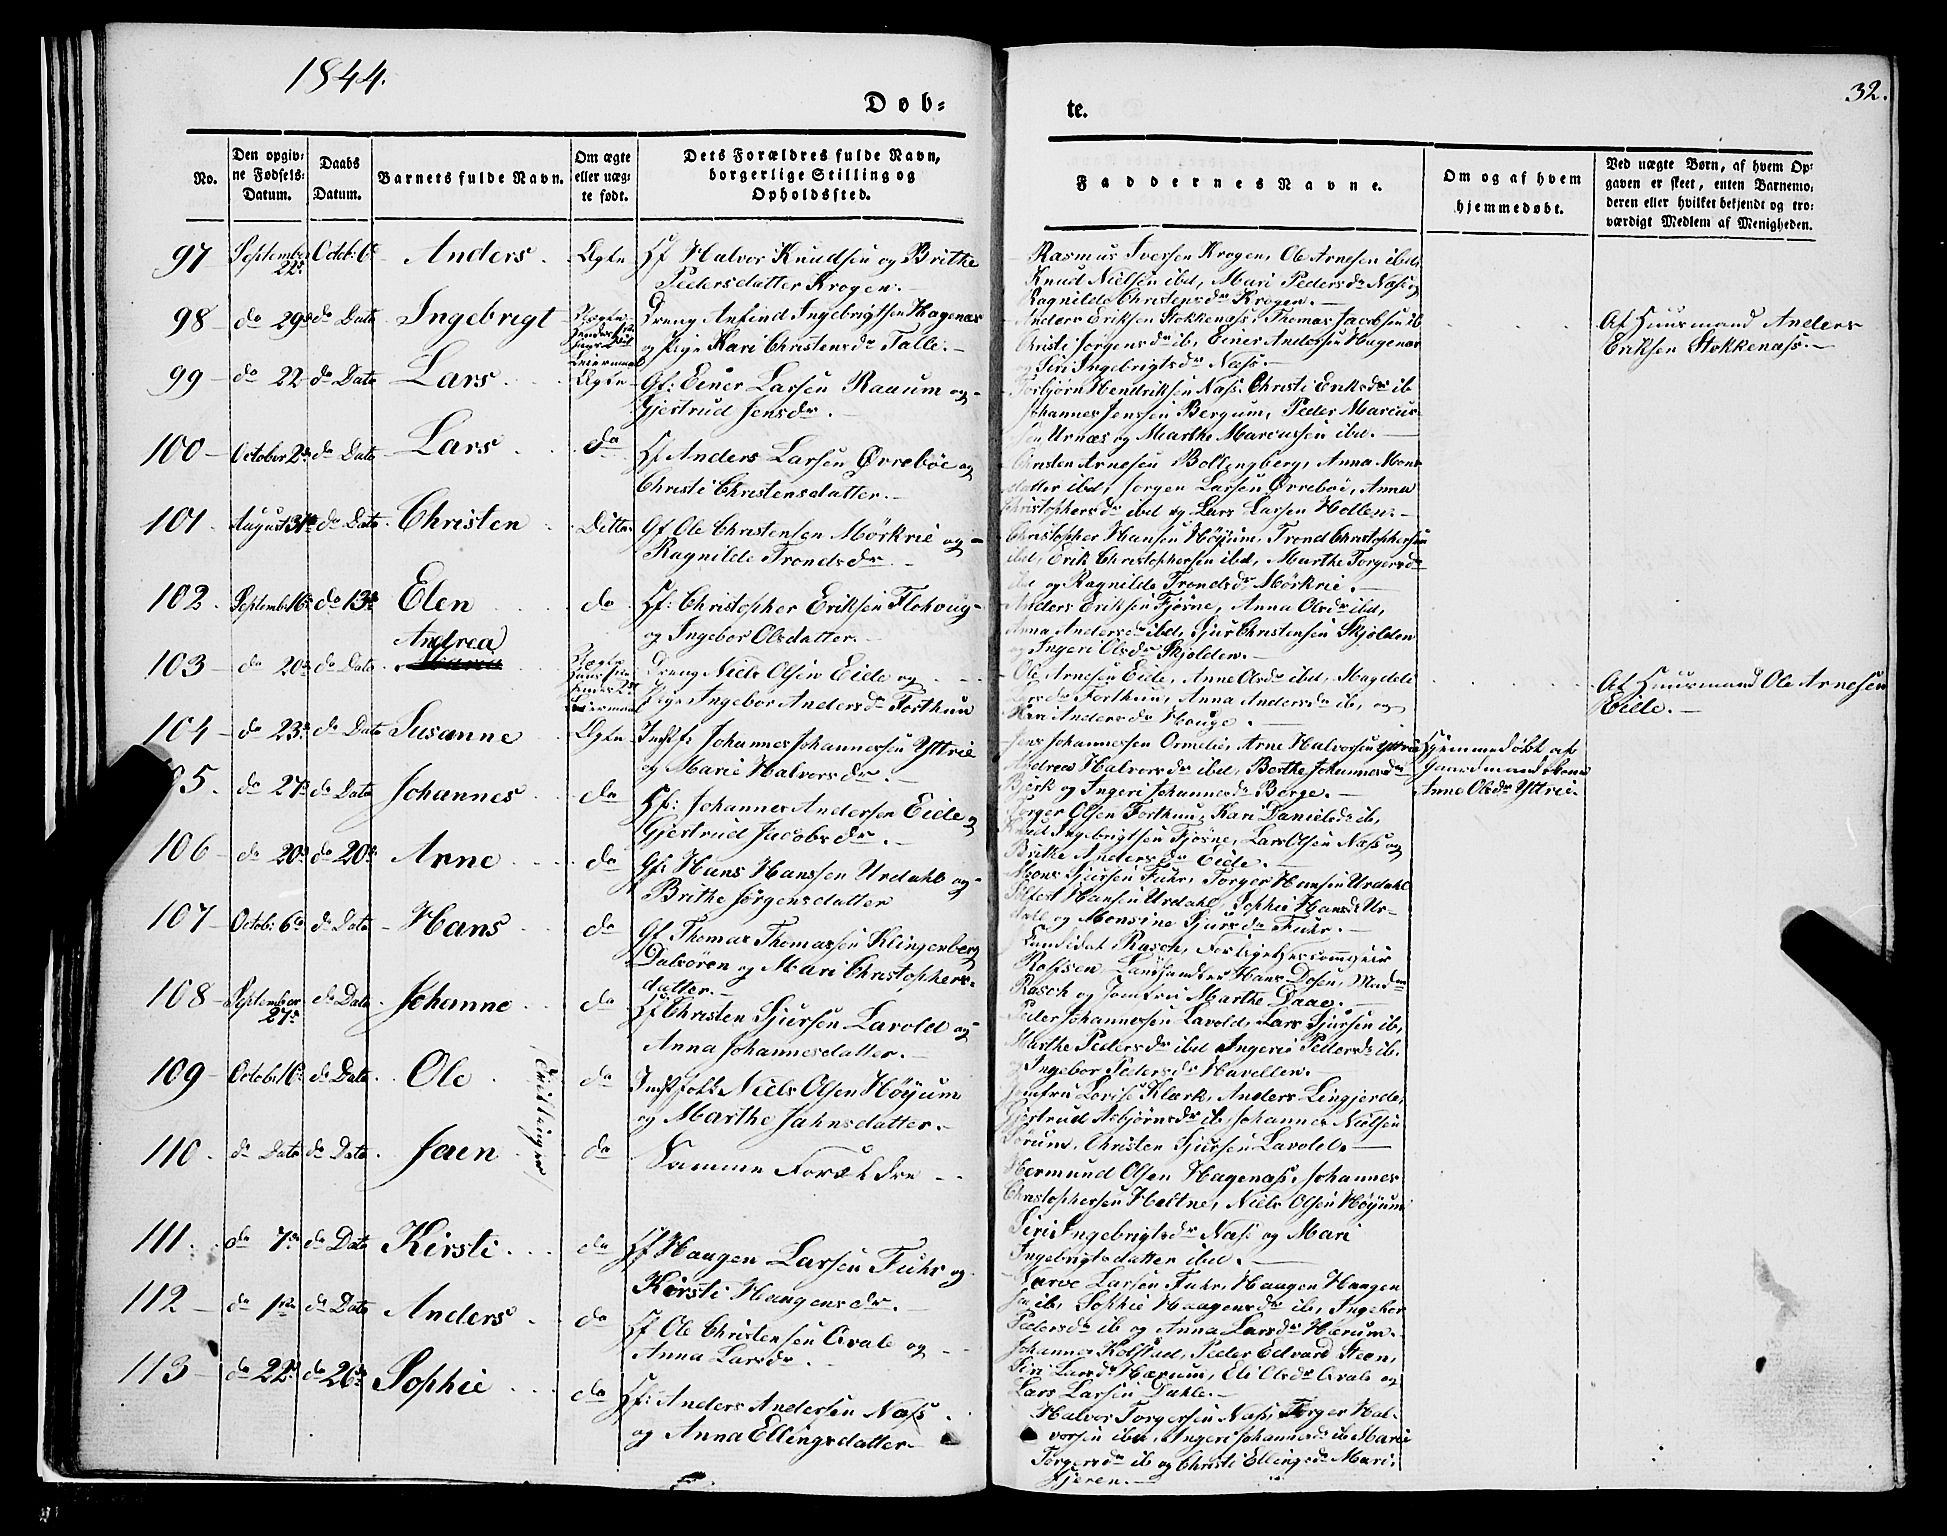 1844.
Døb-
te.
32.
No.
Den opgiv-
ne Fødsels-
Datum.
Daabs
Datum.
Barnets fulde Navn.
Om ægte
eller uæg-
te født.
Dets Forældres fulde Navn,
borgerlige Stilling og
Opholdssted.
Faddernes Navne.
Om og af hvem
hjemmedøbt.
Ved uægte Børn, af hvem Op-
gaven er skeet, enten Barnemo-
deren eller hvilket bekjendt og tro-
værdigt Medlem af Menigheden.
97 September 22de Octobr 6te Anders Ægte Hf Halvor Knudsen og Brithe
Pedersdatter Krogen.
Rasmus Iversen Krogen, Ole Arnesen ibd,
Knud Nielsen ibd, Mari Pedersdr Næss og
Ragnilde Christensdr Krogen.
98 do 29de do Dato Ingebrigt Uægte Dreng Anfind Ingebrigtsen Hagenæs
og Pige Kari Christensdr Talle.
Anders Eriksen Stokkenæss, Thomas Jacobsen ib
Christi Jørgensdr ib, Einer Andersen Hagenæs
og Siri Ingebrigtsdr Næss
Af Huusmand Anders
Eriksen Stokkenæss.
99 do 22 do Dato Lars Ægte Gf: Einer Larsen Raaum og
Gjertrud Jensdr.
Torbjørn Hendriksen Næss, Christi Eriksdr ib
Johannes Jensen Bergum, Peder Marcus-
sen Urnæs og Marthe Marcussen ibd.
100 October 2de do Dato Lars do Hf Anders Larsen Ørrebøe og
Christi Christensdatter.
Christen Arnesen Bollingberg, Anna Mons-
datter ibd, Jørgen Larsen Ørrebøe, Anna
Christophersdr ibd og Lars Larsen Hollen.
101 August 31te do Dato Christen Ditto Gf Ole Christensen Mørkrie og
Ragnilde Trondsdr
Christopher Hansen Høyum, Trond Christophersen
ibd, Erik Christophersen ibd, Marthe Torgersdr
ibd og Ragnilde Trondsdr Mørkrie.
102 Septembr 16de do 13de Elen do Hf: Christopher Eriksen Flohoug
og Ingebor Olsdatter.
Anders Eriksen Fjøsne, Anna Olsdr ibd,
Anna Andersdr ibd, Sjur Christensen Skjolden
og Ingeri Olsdr Skjolden.
103 do 20de do Dato Andrea Uægte Dreng Niels Olsen Eide og
Pige Ingebor Andersdr Forthun
Ole Arnesen Eide, Anne Olsdr ibd, Magdele
Forthun, Anna Andersdr ib, og
Kari Andersdr Houge.
Af Huusmand Ole Arnesen
Eide.
104 do 23de do Dato Susanne Ægte Indstf: Johannes Johannessen Yttrie
og Marie Halvorsdr.
Jens Johannessen Ormelie, Arne Halvorsen Yttrie
Andrea Halvorsdr ibd, Berthe Johannesdr
Bjørk og Ingeri Johannesdr Berge.
Hjemmedøbt af
Gaardmandskone
Anne Olsdr Yttrie.
105. do 27de do Dato Johannes do Hf: Johannes Andersen Eide og
Gjertrud Jacobsdr.
Torger Olsen Forthun, Kari Danielsdr ib,
Knud Ingebrigtsen Fjøsne, Lars Olsen Næss og
Brithe Andersdr Eide.
106 do 20de do 20de Arne do Gf: Hans Hanssen Urdahl og
Brithe Jørgensdatter
Mons Sjursen Fuhr, Torger Hansen Urdahl
Hansen Urdahl, Sophie Hansdr Ur-
dall og Monsine Sjursdr Fuhr.
107 Octob: 6te do Dato Hans do Gf Thomas Thomassen Klingenberg
Dalsøren og Mari Christophers-
datter.
Candidat Rasch, Forligelsescommissair
Rolfsen Landhandler Hans Dosen, Madm
Rasch og Jomfru Marthe Daae.
108 September 27de do Dato Johanne do Hf Christen Sjursen Lavold og
Anna Johannesdatter.
Peder Johannessen Lavold, Lars Sjursen ib,
Marthe Pedersdr ibd Ingerie Pedersdr ib.
og Ingebor Pedersdr Havellen.
109 Octobr 16 do Dato Ole Tvillinger do Indstfolk Niels Olsen Høyum
og Marthe Jahnsdatter.
Jomfru Lovise Klærk, Anders Lingjerde,
Gjertrud Asbjørnsdr ib, Johannes Nielsen
Sørum, Christen Sjursen Lavold.
110. do Dato do Dato Jaen do Samme Forældre
Hermund Olsen Hagenæss, Johannes
Christophersen Heltne, Niels Olsen Høyum
Siri Ingebrigtsdr Næss og Mari
Ingebrigtsdatter ibd.
111. do 7de do Dato Kirsti do Hf Haagen Larsen Fuhr og
Kirsti Haagensdr.
Larsen Fuhr, Haagen Haagen-
sen ib, Sophie Haagensdr ib, Ingebor
Pedersdr ib og Anna Larsdr Hærum.
112 do 1ste do Dato Anders do Hf Ole Christensen Qvale og
Anna Larsdr.
Johannes Kolstad, Peder Edvard Steen,
Siri Larsdr Hærum, Eli Olsdr Qvale og
Lars Larsen Dahle.
113 do 22de do 26de Sophie do Hf: Anders Andersen Næss
og Anna Ellingsdatter
Halvor Torgersen Næss, Torger Hal-
vorsen ibd, Ingeri Johannesdr ib Mari
Torgersdr ib og Christi Ellingsdr Mari-
fjæren.